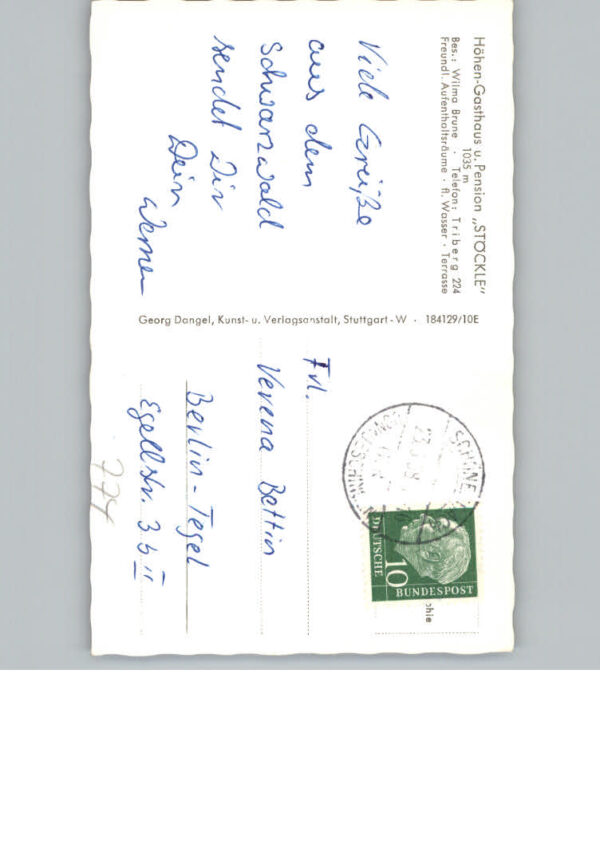 Höhen-Gasthaus u. Pension „STÖCKLE“
1035 m
Bes.: Wilma Brune · Telefon: Triberg 224
Freundl. Aufenthaltsräume · fl. Wasser · Terrasse
Viele Grüße
aus dem
Schwarzwald
sendet Dir
Dein
Werner
Georg Dangel, Kunst- u. Verlagsanstalt, Stuttgart-W · 184129/10E
DEUTSCHE
BUNDESPOST
10
phie
Frl.
Verena Bettin
Berlin-Tegel
Egellstr. 3b II
774